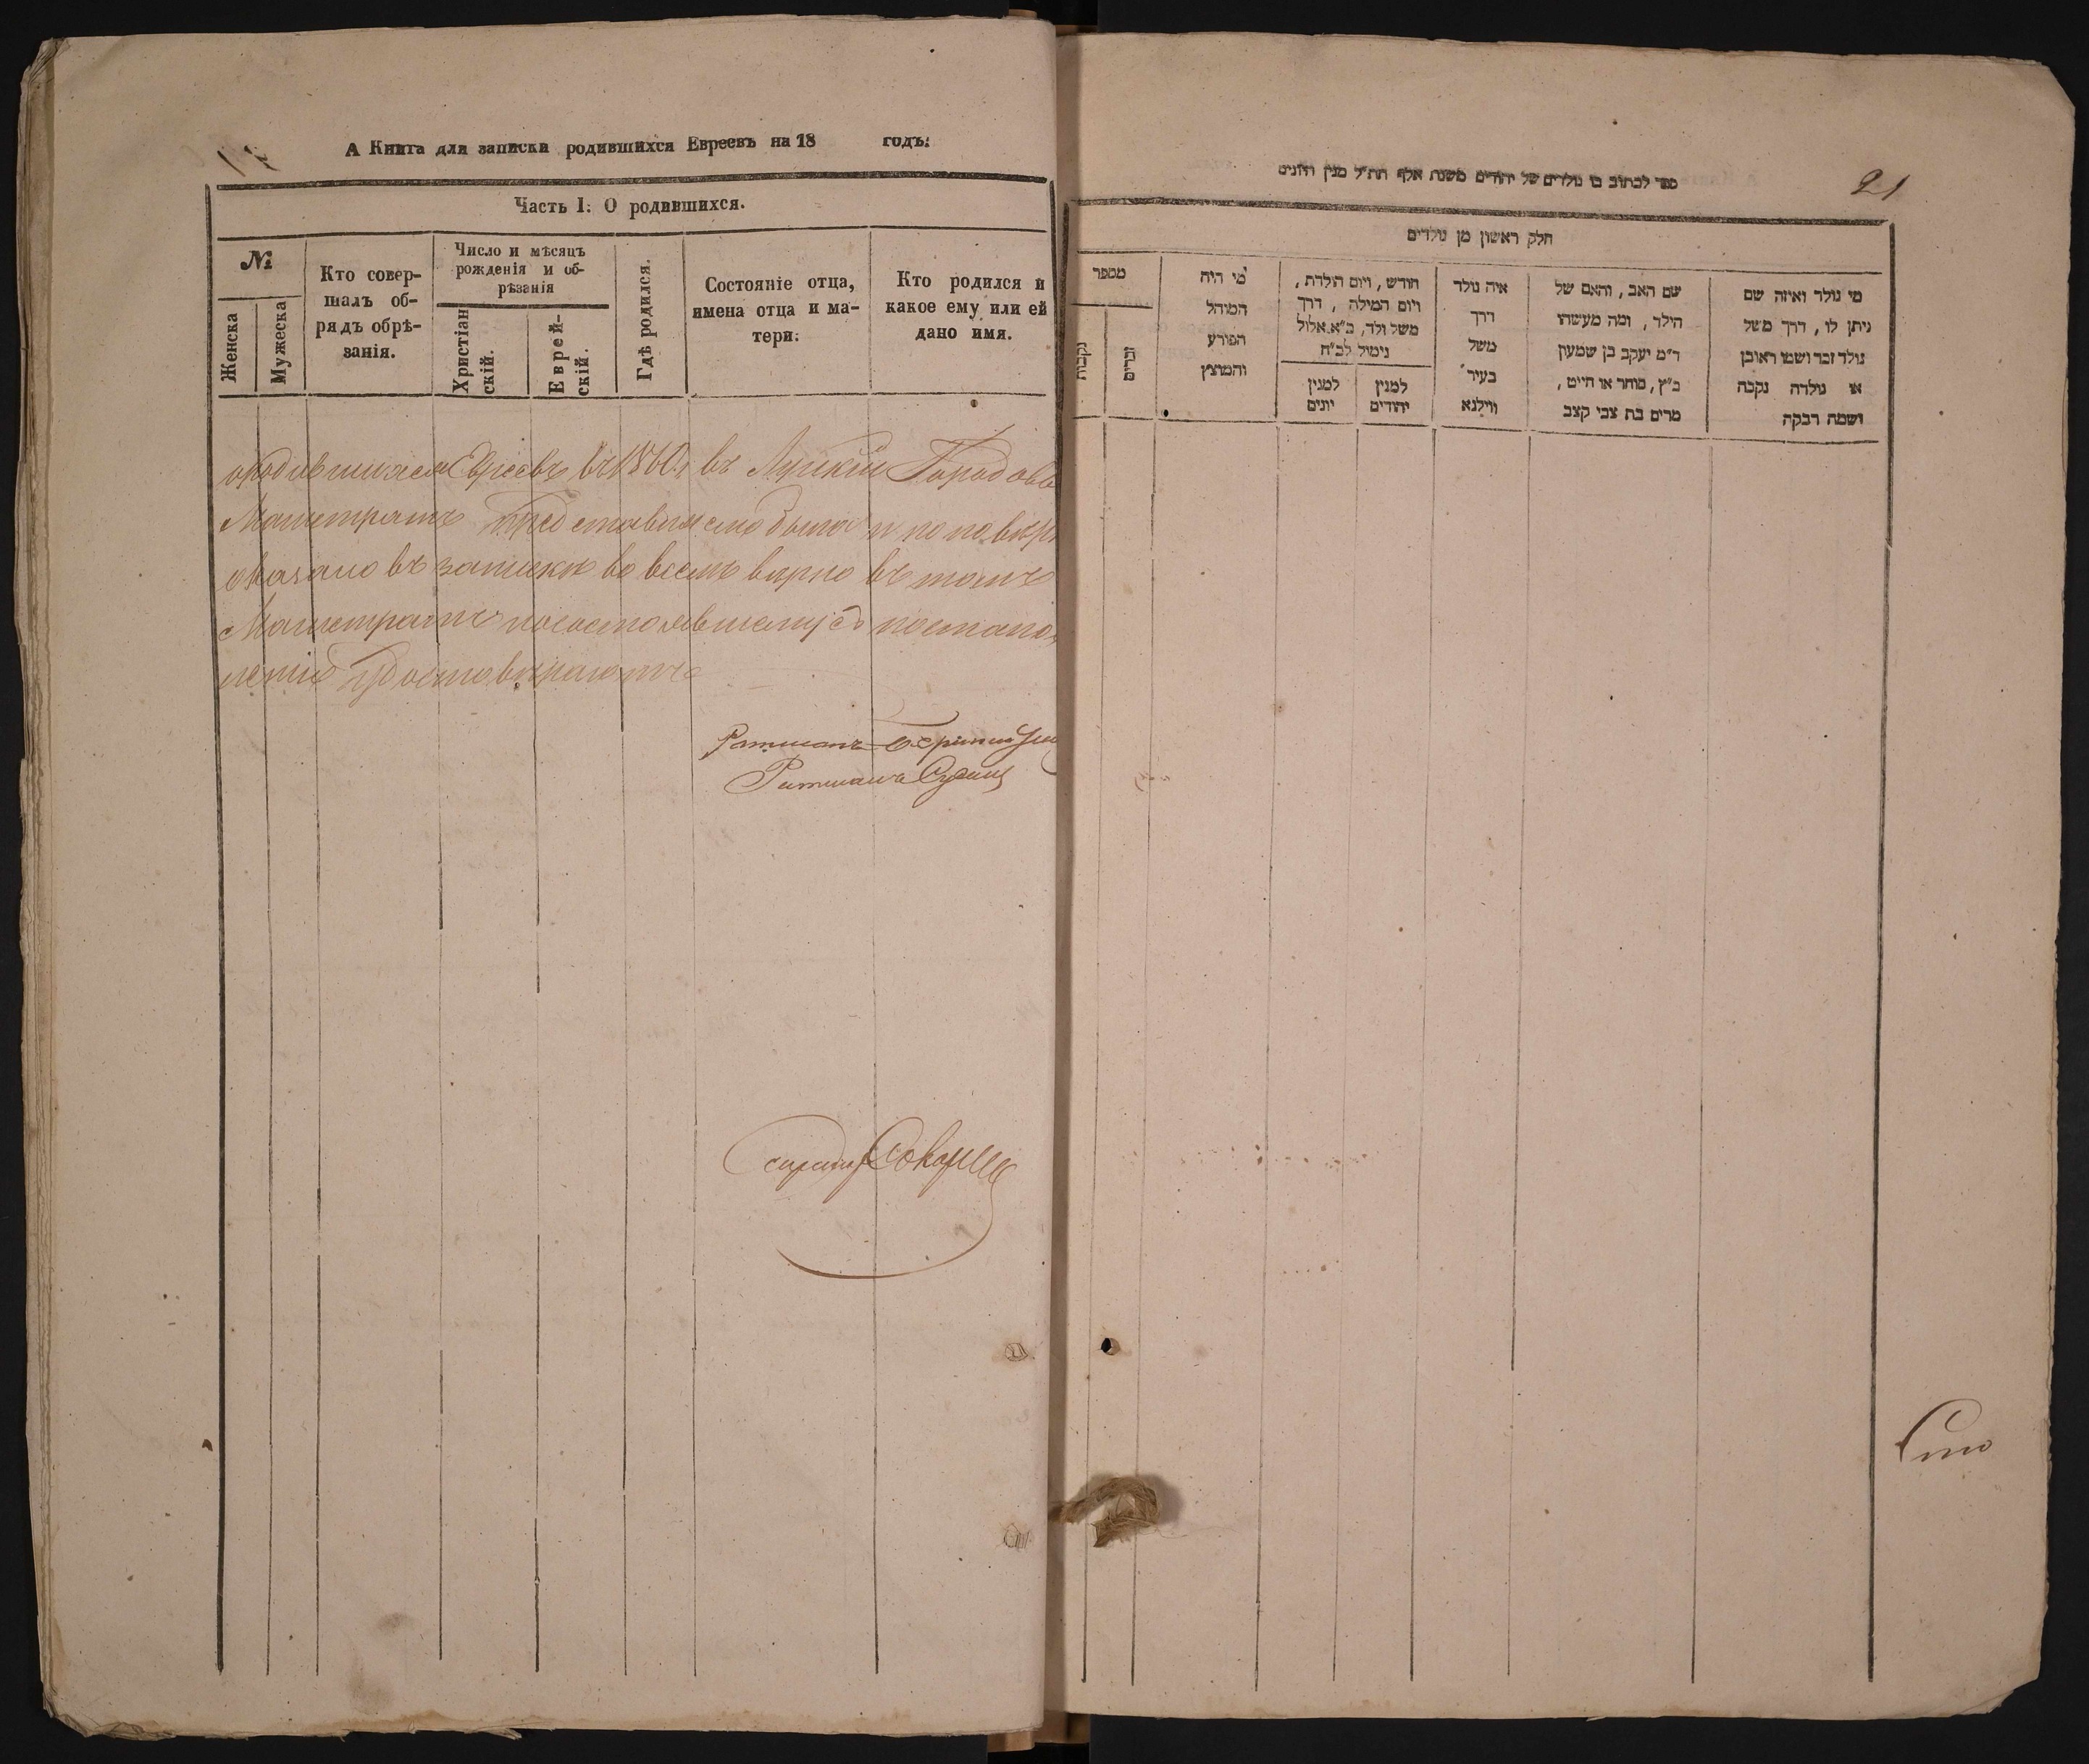 А Книга для записки родившихся Евреевъ на 18 годъ:
Часть I: О родившихся.
№
Женска
Мужеска
Кто совер-
шалъ об-
рядъ обрѣ-
занія.
Число и мѣсяцъ
рожденія и об-
рѣзанія
Христіан
скій.
Еврей-
скій.
Гдѣ родился.
Состояніе отца,
имена отца и ма-
тери:
Кто родился и
какое ему или ей
дано имя.
о родившихся Евреевъ въ 1860 г. въ Луцкій Городовы
Магистратъ представляемо было и по повѣр
оказано въ записки во всемъ вѣрно въ томъ
Магистратъ по состоявшемуся постанов
ленію удостовѣряютъ
Ратманъ
Ратманъ
ספר לכתוב בו נולדים של יהודים משנת אלף תת״ל מנין
21
חלק ראשון מן נולדים
מספר
נקבות
זכרים
מי היה
המוהל
הפורע
והמוצץ
חודש, ויום הולדת,
ויום המילה, דרך
משל ולד, כ״א אלול
נימול לכ״ח
למנין
יונים
למנין
יהודים
איה נולד
דרך
משל
בעיר
ווילנא
שם האב, והאם של
הילד, ומה מעשהו
ד״מ יעקב בן שמעון
כ״ץ, סוחר או חייט,
מרים בת צבי קצב
מי נולד ואיזה שם
ניתן לו, דרך משל
נולד זכר ושמו ראובן
או נולדה נקבה
ושמה רבקה